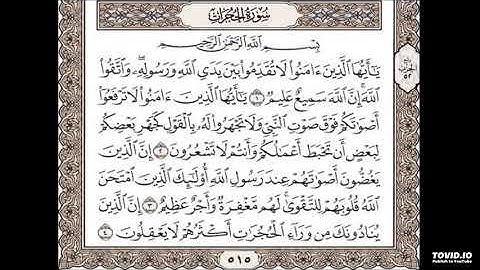 سُورَةُ الحُجُرَاتِ
بِسْمِ ٱللَّهِ ٱلرَّحْمَٰنِ ٱلرَّحِيمِ
يَٰٓأَيُّهَا ٱلَّذِينَ ءَامَنُوا۟ لَا تُقَدِّمُوا۟ بَيْنَ يَدَىِ ٱللَّهِ وَرَسُولِهِۦ ۖ وَٱتَّقُوا۟
ٱللَّهَ ۚ إِنَّ ٱللَّهَ سَمِيعٌ عَلِيمٌ ١ يَٰٓأَيُّهَا ٱلَّذِينَ ءَامَنُوا۟ لَا تَرْفَعُوٓا۟
أَصْوَٰتَكُمْ فَوْقَ صَوْتِ ٱلنَّبِىِّ وَلَا تَجْهَرُوا۟ لَهُۥ بِٱلْقَوْلِ كَجَهْرِ بَعْضِكُمْ
لِبَعْضٍ أَن تَحْبَطَ أَعْمَٰلُكُمْ وَأَنتُمْ لَا تَشْعُرُونَ ٢ إِنَّ ٱلَّذِينَ
يَغُضُّونَ أَصْوَٰتَهُمْ عِندَ رَسُولِ ٱللَّهِ أُو۟لَٰٓئِكَ ٱلَّذِينَ ٱمْتَحَنَ
ٱللَّهُ قُلُوبَهُمْ لِلتَّقْوَىٰ ۚ لَهُم مَّغْفِرَةٌ وَأَجْرٌ عَظِيمٌ ٣ إِنَّ ٱلَّذِينَ
يُنَادُونَكَ مِن وَرَآءِ ٱلْحُجُرَٰتِ أَكْثَرُهُمْ لَا يَعْقِلُونَ ٤
٥١٥
TOVID.IO
Publish to YouTube